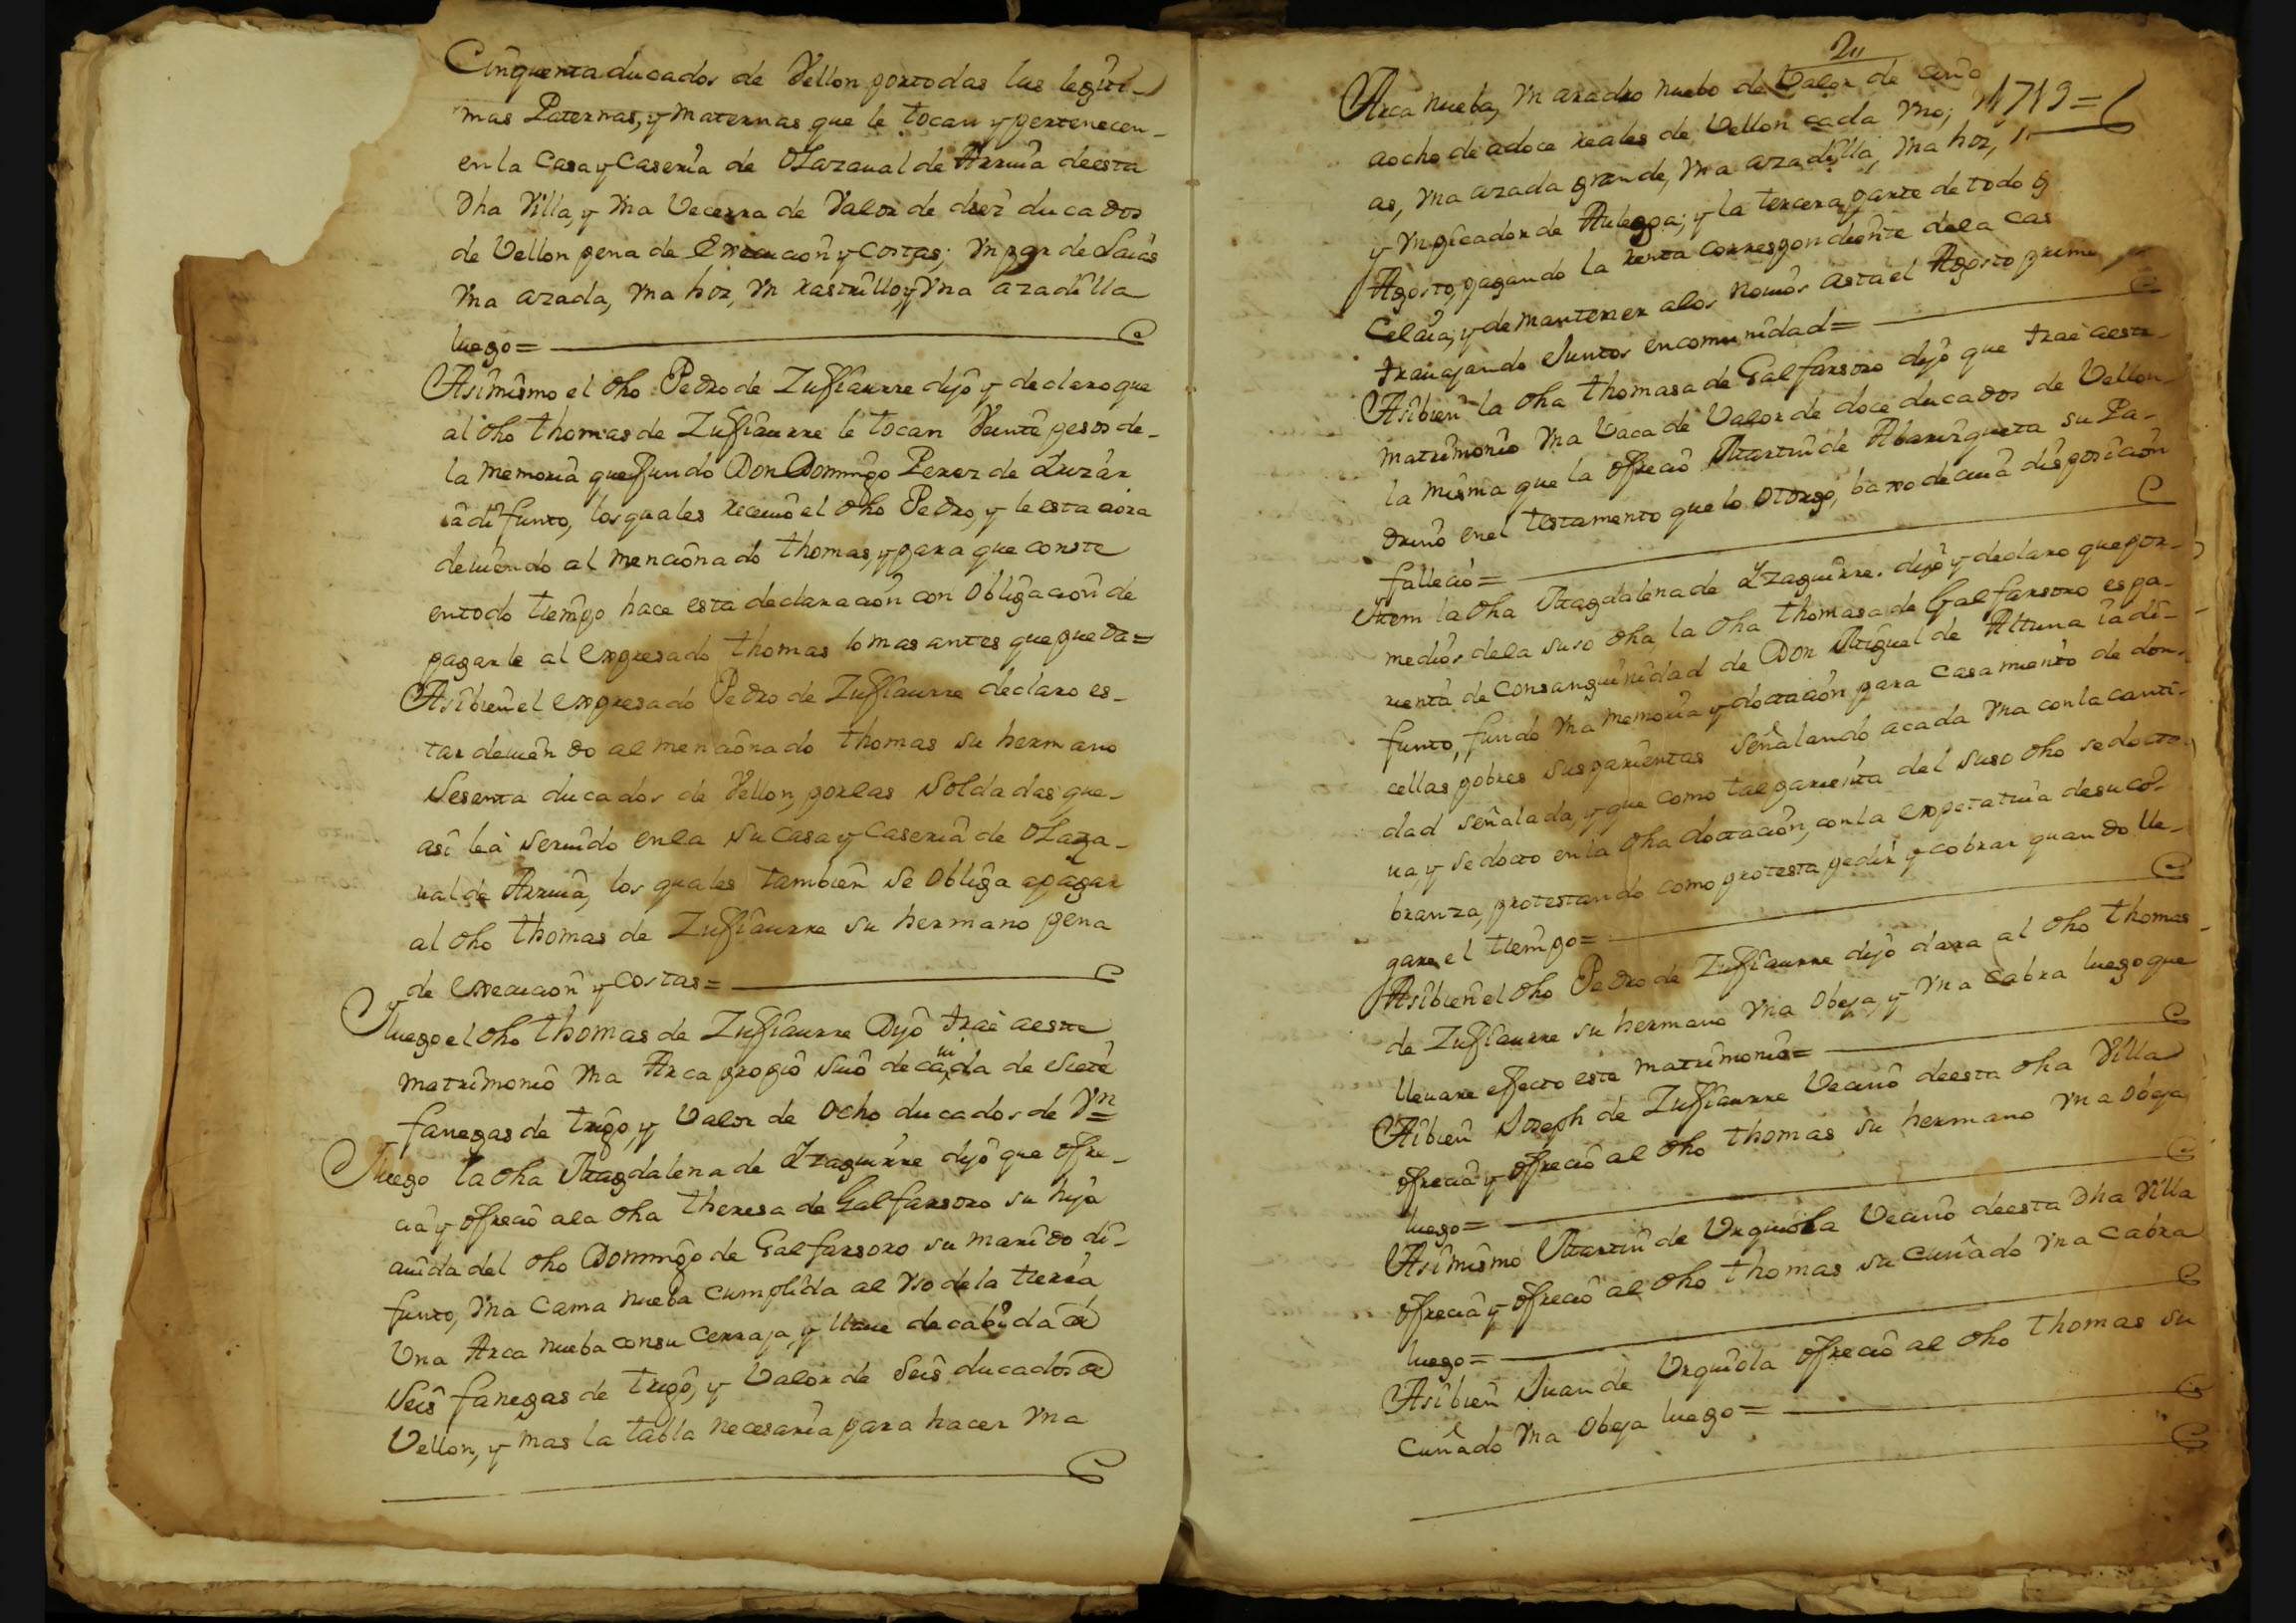 Cinquenta ducados de Vellon por todas las legiti-
mas Paternas, y maternas que le tocan y pertenecen-
en la Casa y Caseria de Olazaual de Arruia de esta
Dha Villa, y Vna Vecerra de Valor de diez ducados
de Vellon pena de Execucion y costas; Vn par de Laias
Vna azada, Vna hoz, Vn rastrillo, y Vna azadilla
luego =
Asimismo el dho Pedro de Zufiaurre dijo y declaro que
al dho thomas de Zufiaurre le tocan Veinte pesos de-
la memoria que fundo Don Domingo Perez de
ia difunto, los quales receuio el dho Pedro, y le esta aora
deuiendo al mencionado thomas, y para que conste
en todo tiempo hace esta declaracion con obligacion de
pagarle al expresado thomas lo mas antes que pueda =
Asibien el expresado Pedro de Zufiaurre declaro es-
tar deuiendo al mencionado thomas su hermano
Sesenta ducados de Vellon, por las Soldadas que-
asi le a seruido en la su Casa y Caseria de Olaza-
ual de Arruia, los quales tambien se obliga a pagar
al dho thomas de Zufiaurre su hermano pena
de execucion y costas =
Y luego el dho thomas de Zufiaurre Dijo trae a este
matrimonio Vna Arca propio suio de cauida de siete
fanegas de trigo, y Valor de ocho ducados de Vn
Y luego la dha Magdalena de Yzaguirre dijo que ofre-
cia y ofrecio a la dha theresa de Galfarsoro su hija
auida del dho Domingo de Galfarsoro su marido di-
funto, Vna Cama nueba cumplida al Vso de la tierra
Vna Arca nueba con su Cerraja, y llaue de cabida de
Seis fanegas de trigo, y Valor de seis ducados de
Vellon, y mas la tabla necesaria para hacer Vna
Arca nueba, Vn arado nuebo de Valor de cinco
1719 =
a ocho de a doce reales de Vellon cada Vno;
as, Vna azada grande, Vna azadilla, Vna hoz,
y Vn picador de Aulegga; y la tercera parte de todo
Agosto, pagando la renta correspondiente de la Cas
Celaia; y de mantener a los nouios asta el Agosto prime
trauajando Juntos en comunidad =
Asibien la dha thomasa de Galfarsoro dijo que trae a este
matrimonio Vna Vaca de Valor de doce ducados de Vellon
la misma que la ofrecio Martin de Abarizqueta su Pa-
drino en el testamento que lo otorgo, baxo de cuia disposicion
fallecio =
Ytem la dha Magdalena de Yzaguirre dijo y declaro que por-
medios de la suso dha, la dha thomasa de Galfarsoro es pa-
rienta de Consanguinidad de Don Miguel de Altuna ia di-
funto, fundo Vna memoria y dotacion para casamiento de don-
cellas pobres sus parientas señalando a cada Vna con la canti-
dad señalada, y que como tal parienta del suso dho se docto
ua y se docto en la dha doctacion, con la expetatiua de su co-
branza, protestando como protesta pedir y cobrar quando lle-
gare el tiempo =
Asibien el dho Pedro de Zufiaurre dijo dara al dho thomas
de Zufiaurre su hermano Vna obeja, y Vna Cabra luego que
lleuare efecto este matrimonio =
Asibien Joseph de Zufiaurre Vecino de esta dha Villa
ofrecia y ofrecio al dho thomas su hermano Vna obeja
luego =
Asimismo Martin de Vrquiola Vecino de esta Dha Villa
ofrecia y ofrecio al dho thomas su cuñado Vna Cabra
luego =
Asibien Juan de Vrquiola ofrecio al dho thomas su
Cuñado Vna obeja luego =